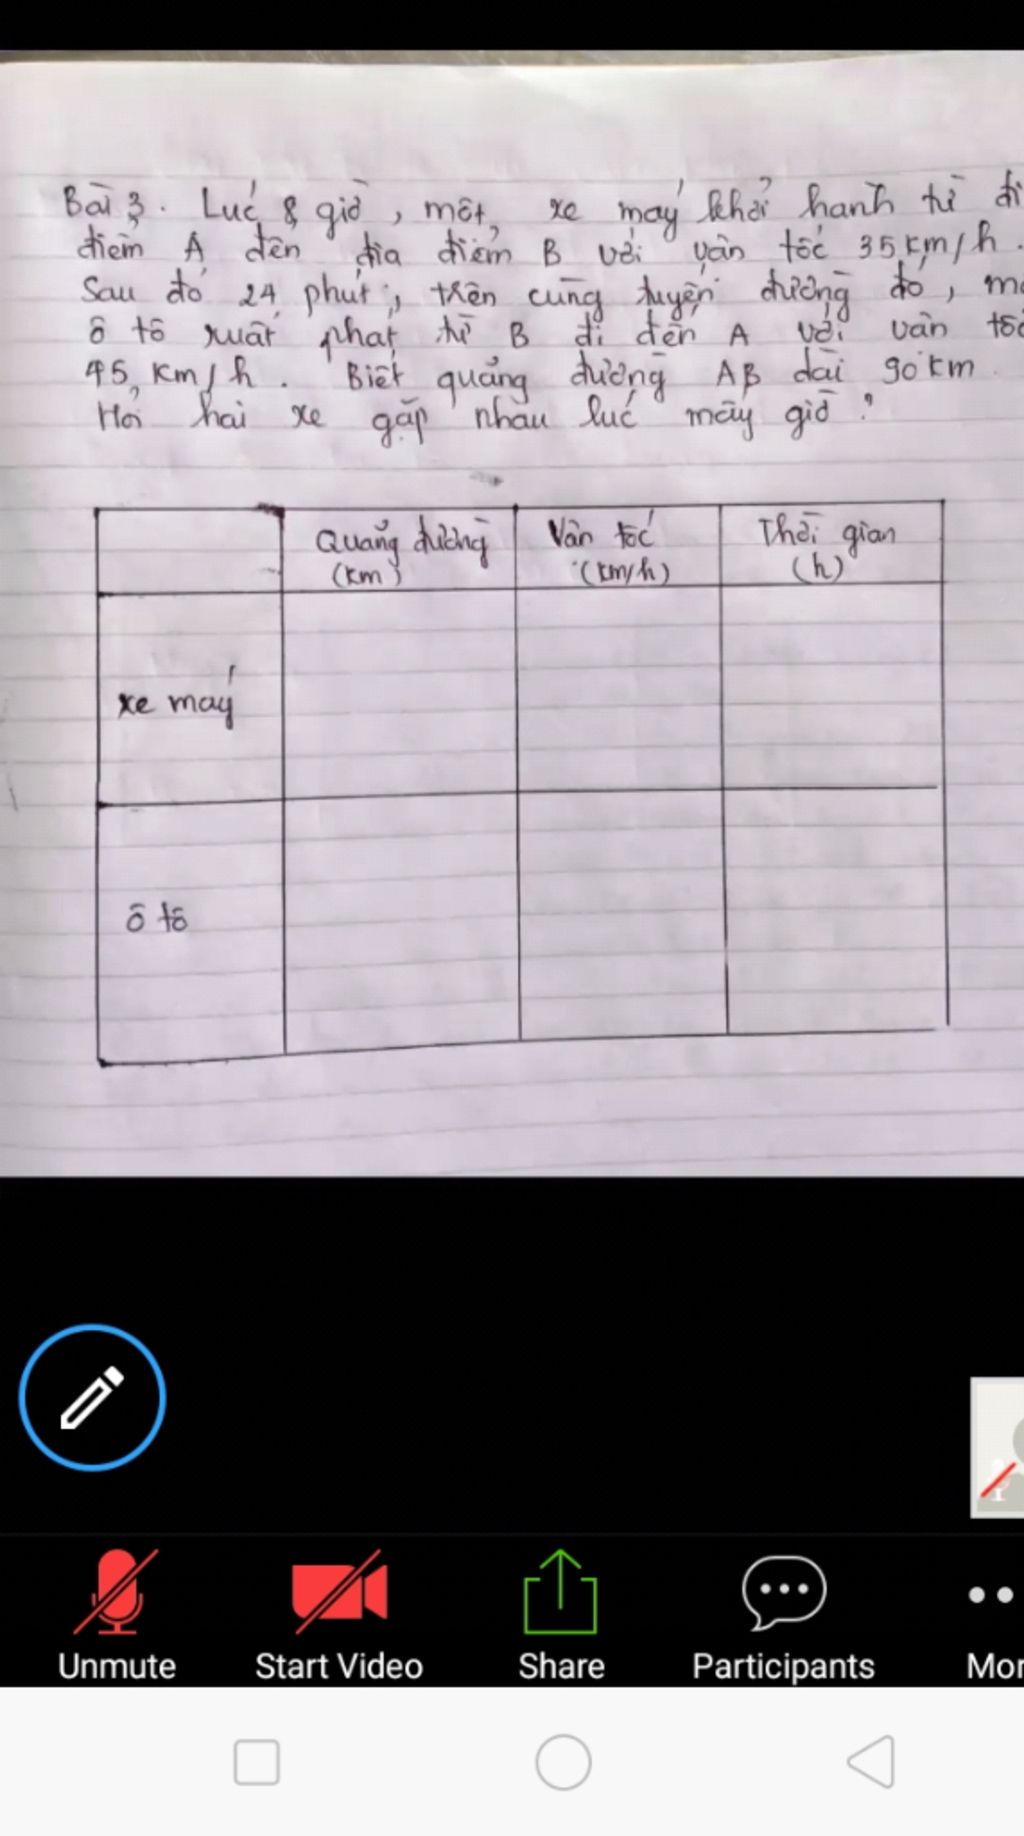 Bài 3. Lúc 8 giờ, một xe máy khởi hành từ đị
điểm A đến địa điểm B với vận tốc 35 km/h.
Sau đó 24 phút, trên cùng tuyến đường đó, mộ
ô tô xuất phát từ B đi đến A với vận tốc
45 km/h. Biết quãng đường AB dài 90 km.
Hỏi hai xe gặp nhau lúc mấy giờ?
Quãng đường (km) Vận tốc (km/h) Thời gian (h)
xe máy
ô tô
Unmute Start Video Share Participants Mor